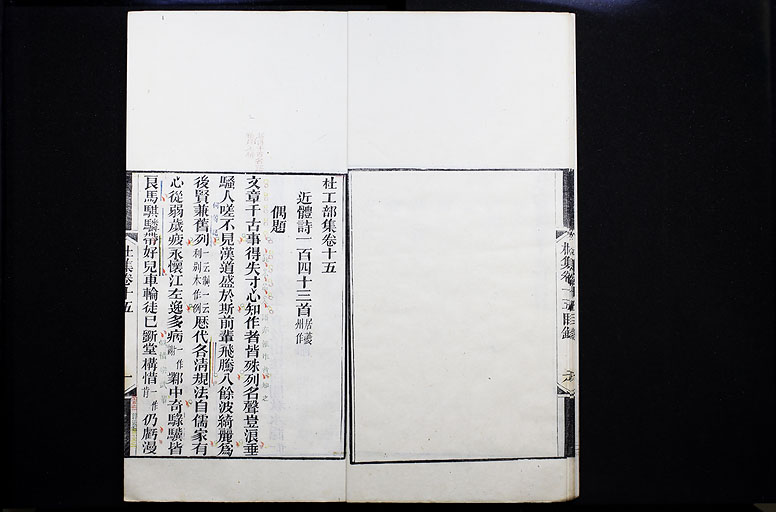 杜集卷十五目錄
杜工部集卷十五
近體詩一百四十三首居夔州作
偶題
文章千古事得失寸心知作者皆殊列名聲豈浪垂
騷人嗟不見漢道盛於斯前輩飛騰入餘波綺麗爲
後賢兼舊列歷代各清規法自儒家有
心從弱歲疲永懷江左逸多病一作謝鄴中奇騄驥皆
良馬騏驎帶好兒車輪徒已斲堂構惜一作肯仍虧漫
杜集卷十五
一